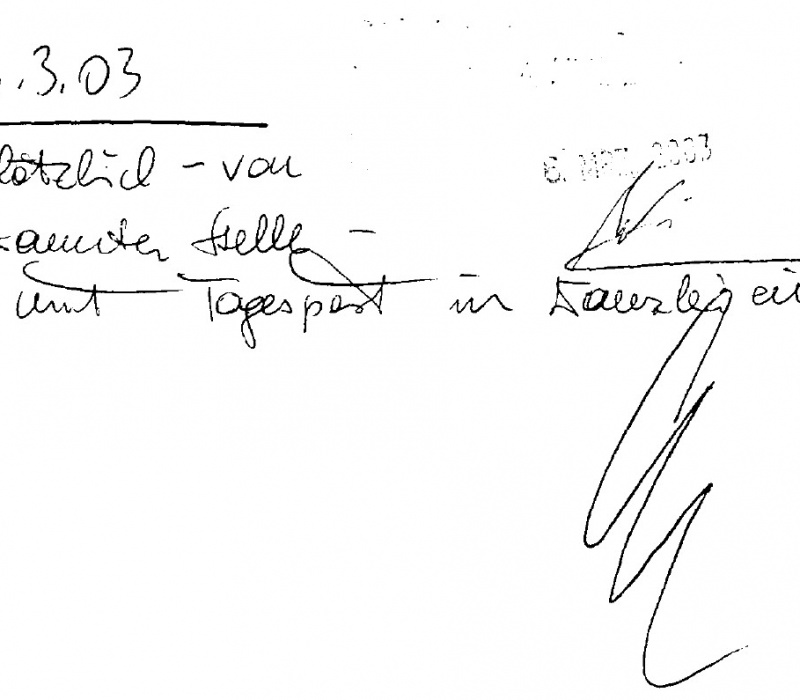 .3.03
lötzlich - von
kannter Stelle -
mit Tagespost in Kanzlei ei
6. MRZ. 2003